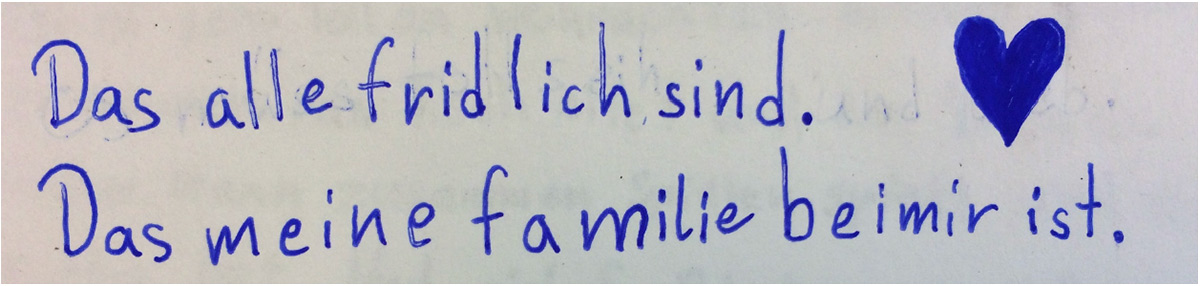 Das alle fridlich sind.
Das meine familie bei mir ist.